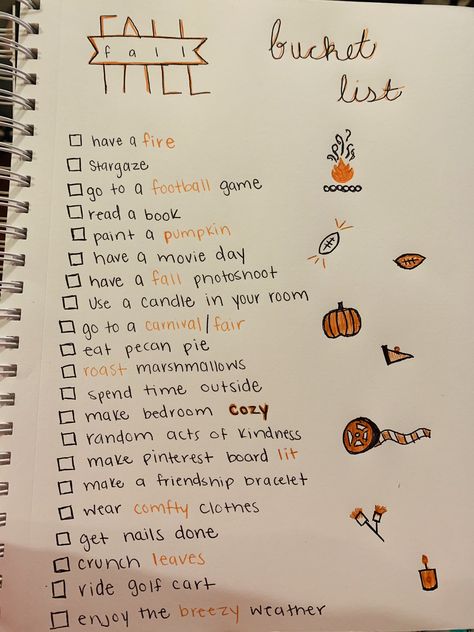 FALL
fall
bucket
list
have a fire
stargaze
go to a football game
read a book
paint a pumpkin
have a movie day
have a fall photoshoot
use a candle in your room
go to a carnival/fair
eat pecan pie
roast marshmallows
spend time outside
make bedroom cozy
random acts of kindness
make pinterest board lit
make a friendship bracelet
wear comfty clothes
get nails done
crunch leaves
ride golf cart
enjoy the breezy weather